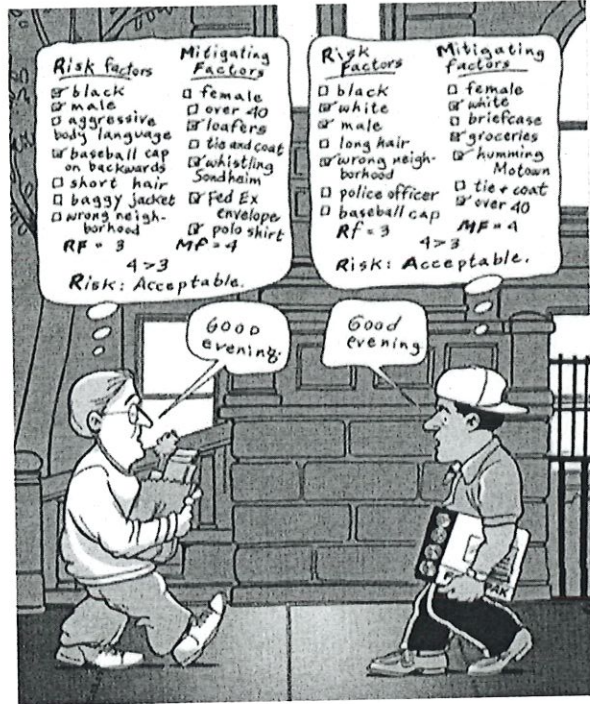 Risk factors
☑ black
☑ male
☐ aggressive
body language
☑ baseball cap
on backwards
☐ short hair
☐ baggy jacket
☐ wrong neigh-
borhood
RF = 3
Mitigating
Factors
☐ female
☐ over 40
☑ loafers
☐ tie and coat
☑ whistling
Sondheim
☑ Fed Ex
envelope
☑ polo shirt
MF = 4
4 > 3
Risk: Acceptable.
Risk
Factors
☐ black
☑ white
☑ male
☐ long hair
☑ wrong neigh-
borhood
☐ police officer
☐ baseball cap
Rf = 3
Mitigating
factors
☐ female
☑ white
☐ briefcase
☑ groceries
☑ humming
Motown
☐ tie + coat
☑ over 40
MF = 4
4 > 3
Risk: Acceptable.
GOOD
evening.
Good
evening
PAK